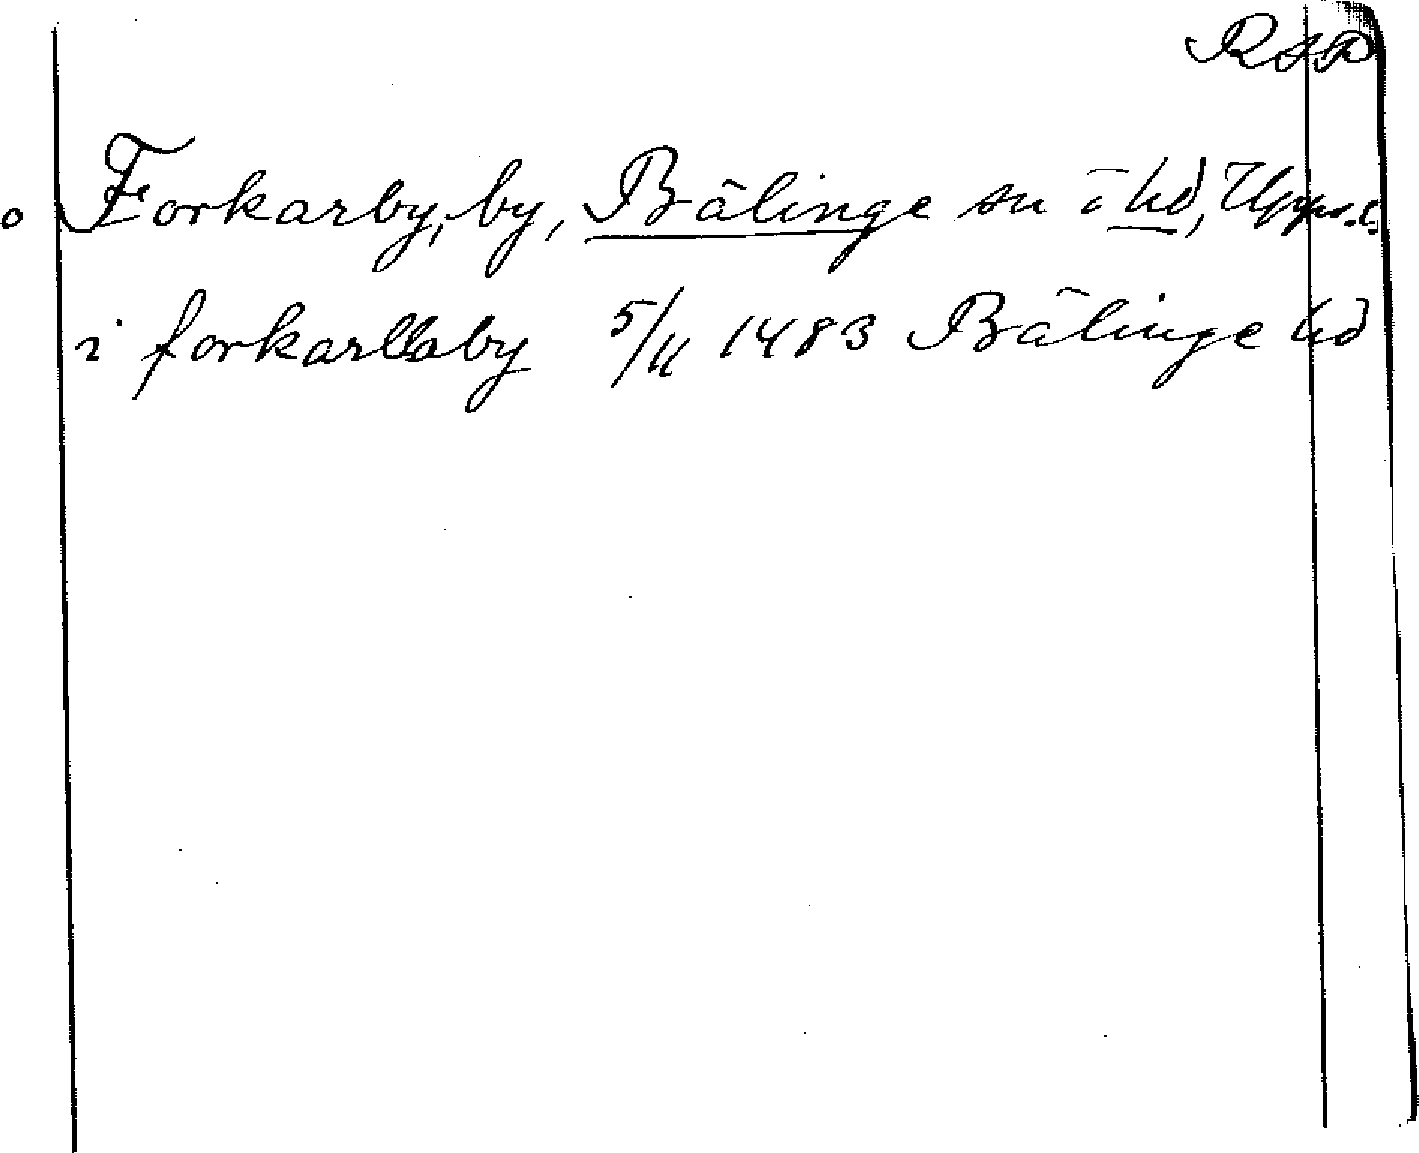 RAP
o Forkarby, by, Bälinge sn o hd, Upps. l.
i forkarlaby 5/11 1483 Bälinge hd